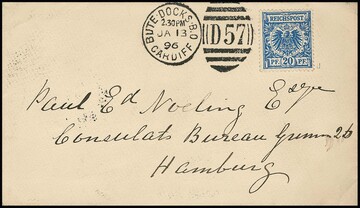 BUTE-DOCKS.B.O
2.30PM
JA 13
96
CARDIFF
D57
REICHSPOST
PF. 20 PF.
Paul Ed Noelting Esqre
Consulats Bureau 26
Hamburg